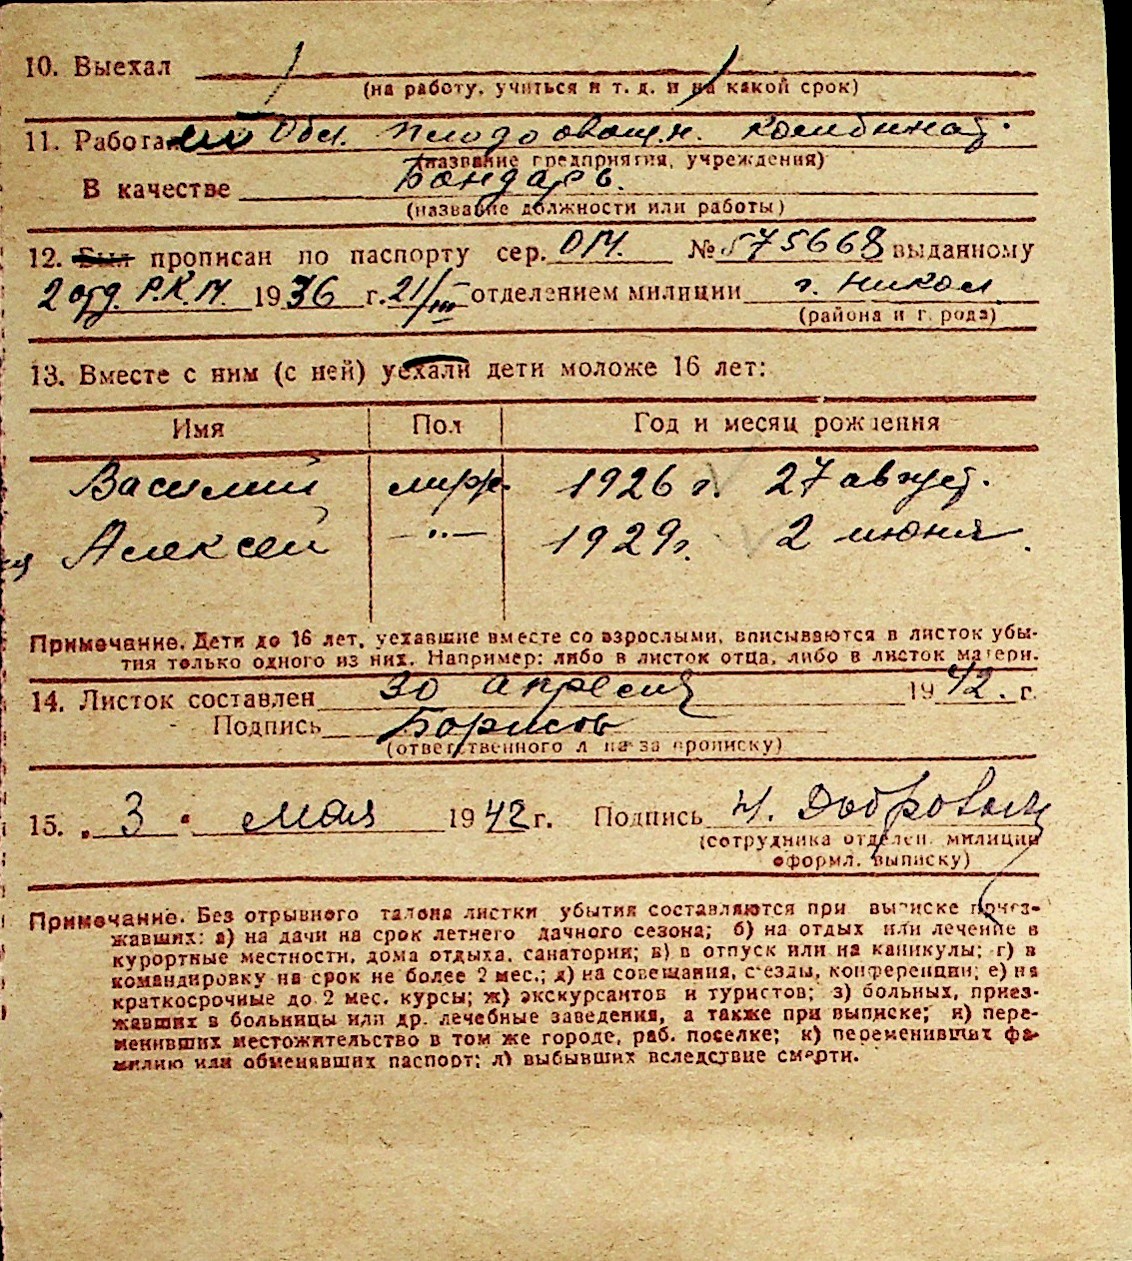 10. Выехал
(на работу, учиться и т. д. и на какой срок)
11. Работает Обл. плодоовощн. комбинат.
(название предприятия, учреждения)
В качестве Бондарь.
(название должности или работы)
12. Был прописан по паспорту сер. ОМ. № 575668 выданному
2 отд. Р.К.М. 1936 г. 21/III отделением милиции г. Никол
(района и города)
13. Вместе с ним (с ней) уехали дети моложе 16 лет:
Имя Пол Год и месяц рождения
Василий муж. 1926 г. 27 август.
Алексей —"— 1929г. 2 июня.
Примечание. Дети до 16 лет, уехавшие вместе со взрослыми, вписываются в листок убы-
тия только одного из них. Например: либо в листок отца, либо в листок матери.
14. Листок составлен 30 апреля 1942. г.
Подпись Борисов
(ответственного лица за прописку)
15. „ 3 " мая 1942 г. Подпись Н.
(сотрудника отделен. милиции
оформл. выписку)
Примечание. Без отрывного талона листки убытия составляются при выписке приез-
жавших: а) на дачи на срок летнего дачного сезона; б) на отдых или лечение в
курортные местности, дома отдыха, санатории; в) в отпуск или на каникулы; г) в
командировку на срок не более 2 мес.; д) на совещания, с'езды, конференции; е) на
краткосрочные до 2 мес. курсы; ж) экскурсантов и туристов; з) больных, приез-
жавших в больницы или др. лечебные заведения, а также при выписке; и) пере-
менивших местожительство в том же городе, раб. поселке; к) переменивших фа-
милию или обменявших паспорт; л) выбывших вследствие смерти.